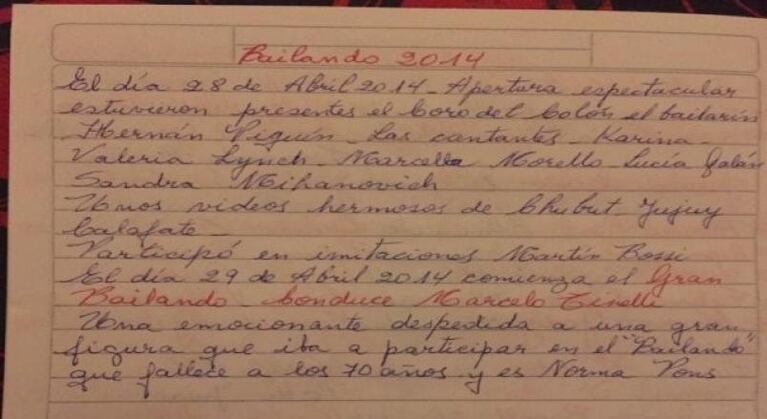 Bailando 2014
El día 28 de Abril 2014 - Apertura espectacular
estuvieron presentes el Coro del Colón el bailarín
Hernán Piquín - Las cantantes - Karina -
Valeria Lynch - Marcella Morello - Lucía Galán
Sandra Mihanovich
Unos videos hermosos de Chubut - Jujuy
Calafate -
Participó en imitaciones Martín Bossi
El día 29 de Abril 2014 comienza el Gran
Bailando - Conduce Marcelo Tinelli
Una emocionante despedida a una gran
figura que iba a participar en el "Bailando"
que fallece a los 70 años y es Norma Pons